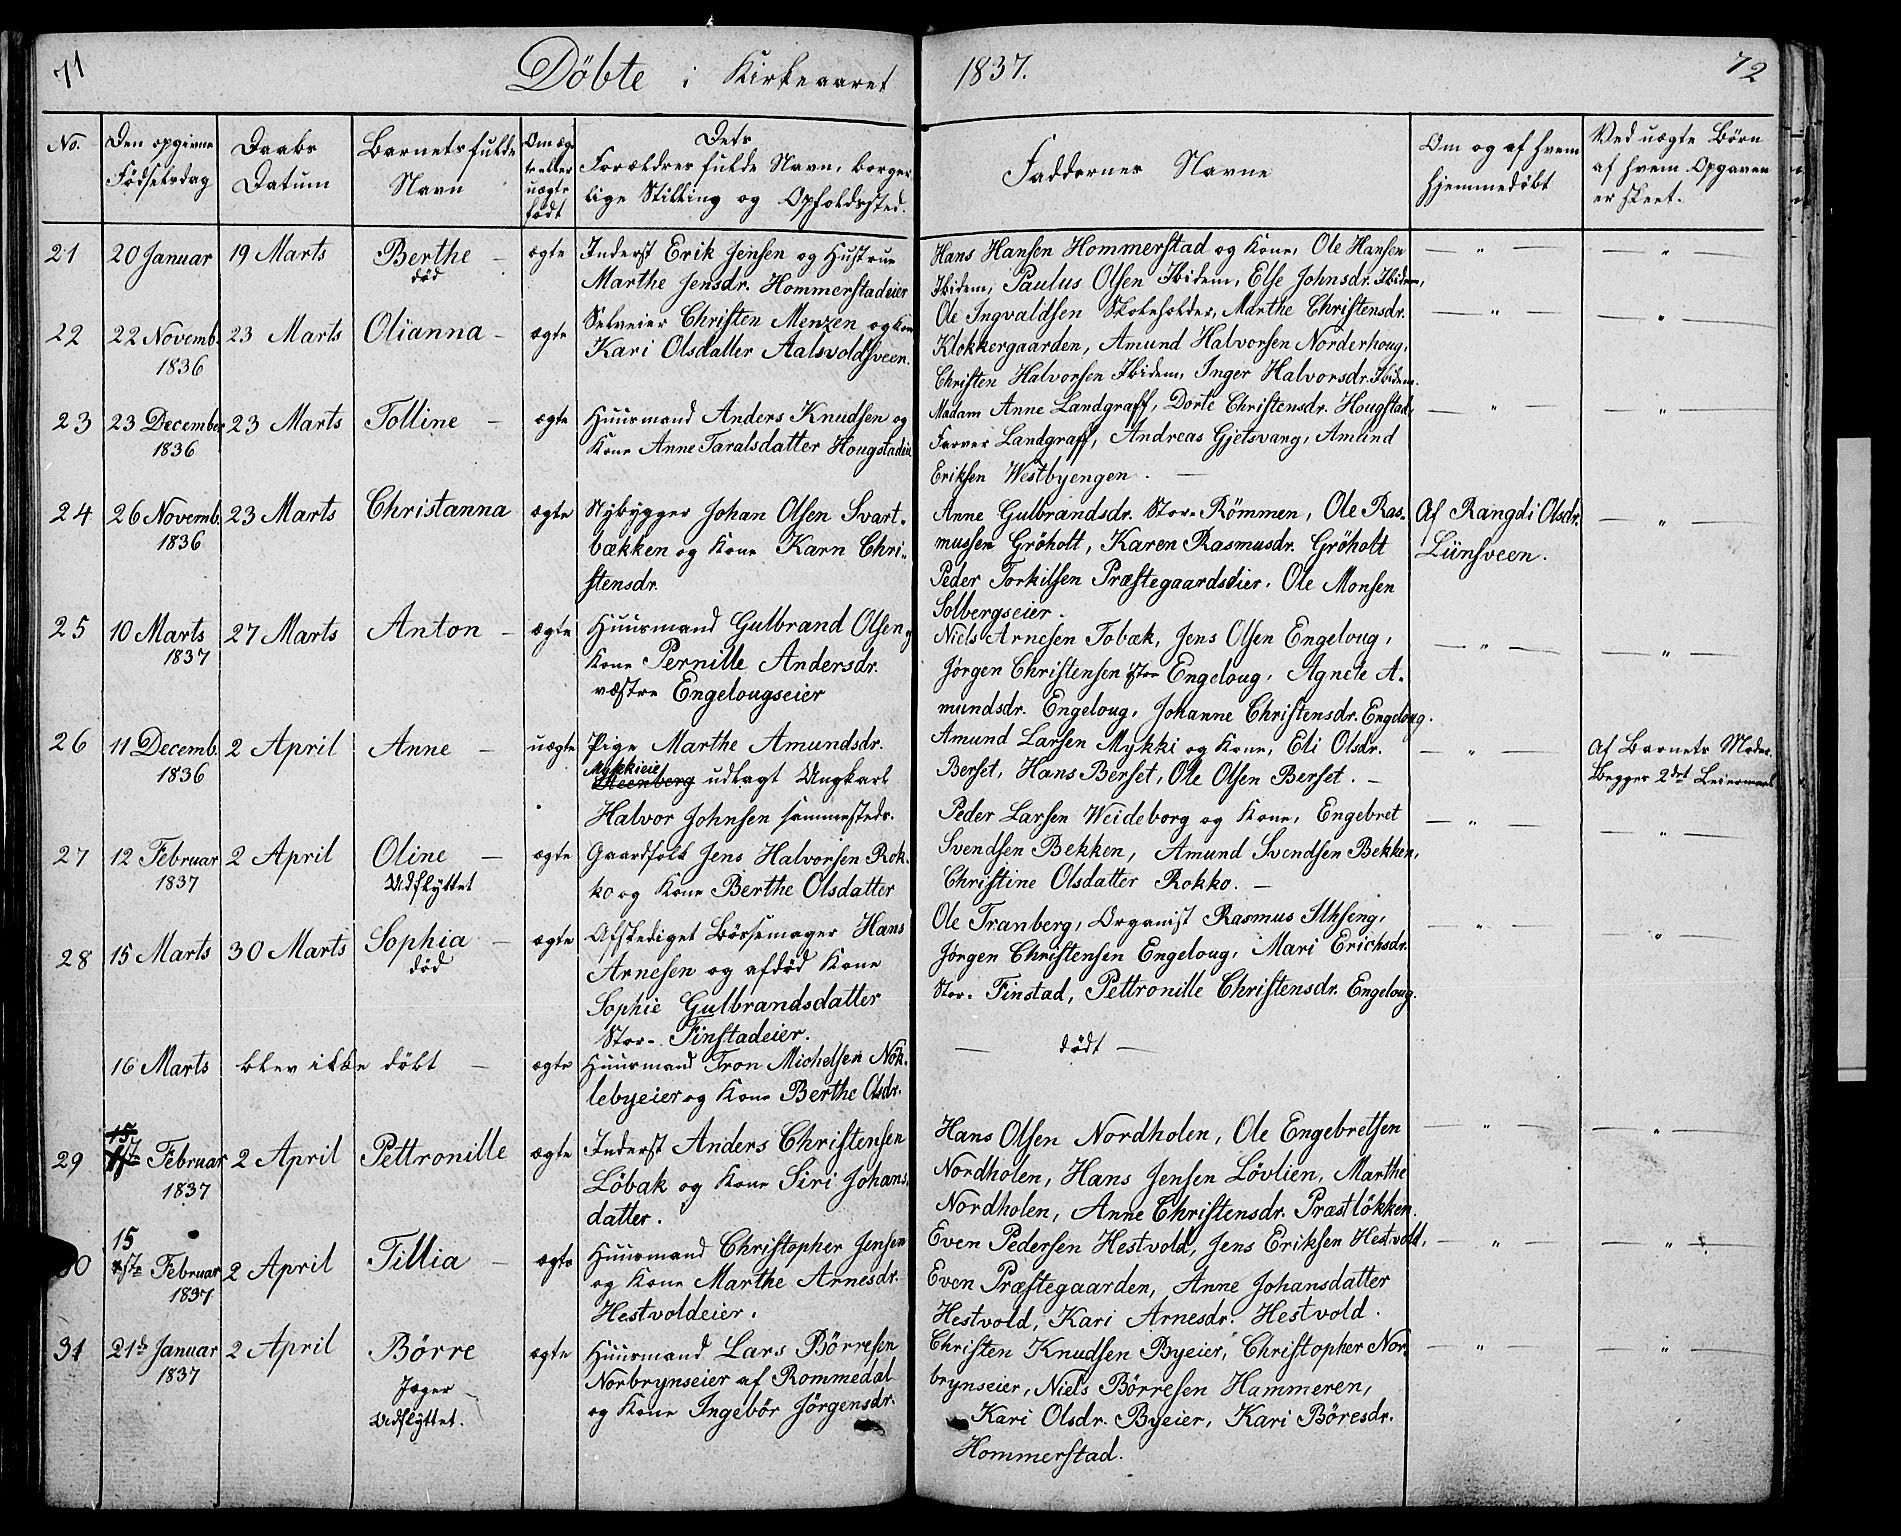 71
Döbte i Kirkeaaret
1837.
72
No.
Den opgivne
Födselsdag
Daabs
Datum
Barnets fulde
Navn
Om æg-
te eller
uægte
födt
Dets
Forældres fulde Navn, borger-
lige Stilling og Opholdssted.
Faddernes Navne
Om og af hvem
hjemmedöbt
Ved uægte Börn
af hvem Opgaven
er skeet.
21 20 Januar 19 Marts Berthe - ægte
död
Inderst Erik Jensen og Hustrue
Marthe Jensdr. Hommerstadeier
Hans Hansen Hommerstad og Kone, Ole Hansen
Ibidem, Paulus Olsen Ibidem, Else Johnsdr. Ibidem,
— " — — " —
22 22 Novemb. 23 Marts Olianna - ægte
1836
Selveier Christen Menzen og Kone
Kari Olsdatter Aalsvoldsveen.
Ole Ingvaldsen Skoleholder, Marthe Christensdr.
Klokkergaarden, Amund Halvorsen Norderhoug,
Christen Halvorsen Ibidem, Inger Halvorsdr. Ibidem.
— " — — " —
23 23 December 23 Marts Tolline - ægte
1836
Huusmand Anders Knudsen og
Kone Anne Taralsdatter Hougstadeie
Madam Anne Landgraff, Dorte Christensdr. Hougstad,
Farver Landgraff, Andreas Gjetsvang, Amund
Eriksen Westbyengen. —
— " — — " —
24 26 Novemb. 23 Marts Christanna ægte
1836
Nybygger Johan Olsen Svart-
bækken og Kone Karn Chri-
stensdr.
Anne Gulbrandsdr. Stor-Römmen, Ole Ras-
mussen Gröholt, Karen Rasmusdr. Gröholt
Peder Torkilsen Præstegaardseier, Ole Monsen
Solbergseier -
Af Rangdi Olsdr.
Lünsveen.
— " —
25 10 Marts 27 Marts Anton - ægte
1837
Huusmand Gulbrand Olsen og
Kone Pernille Andersdr.
væstre Engelougseier
Niels Arnesen Tobak, Jens Olsen Engeloug,
Jörgen Christensen östre Engeloug, Agnete A-
mundsdr. Engeloug, Johanne Christensdr. Engeloug.
— " — — " —
26 11 Decemb. 2 April Anne - uægte
1836
Pige Marthe Amundsdr.
Mykkieie
Steenberg udlagt Ungkarl
Halvor Johnsen sammesteds.
Amund Larsen Mykki og Kone, Eli Olsdr.
Berset, Hans Berset, Ole Olsen Berset. -
— " —
Af Barnets Moder.
Begges 2det Leiermaal
27 12 Februar 2 April Oline - ægte
1837
Udflyttet
Gaardfolk Jens Halvorsen Rok-
ko og Kone Berthe Olsdatter
Peder Larsen Weideborg og Kone, Engebret
Svendsen Bekken, Amund Svendsen Bekken,
Christine Olsdatter Rokko. -
— " — — " —
28 15 Marts 30 Marts Sophia - ægte
död
Afskediget Börsemager Hans
Arnesen og afdöd Kone
Sophie Gulbrandsdatter
Stor- Finstadeier.
Ole Tranberg, Organist Rasmus Ilhseng,
Jörgen Christensen Engeloug, Mari Erichsdr.
Stor- Finstad, Pettronille Christensdr. Engeloug.
— " — — " —
16 Marts blev ikke döbt - ægte
Huusmand Tron Michelsen Nök-
lebyeier og Kone Berthe Olsdr.
— dödt —
29 Februar 2 April Pettronille ægte
15
1837
Inderst Anders Christensen
Löbak og Kone Siri Johans-
datter.
Hans Olsen Nordholen, Ole Engebretsen
Nordholen, Hans Jensen Lövlien, Marthe
Nordholen, Anne Christensdr. Præstlökken.
— " — — " —
15
30 1ste Februar 2 April Tillia - ægte
1837
Huusmand Christopher Jensen
og Kone Marthe Arnesdr.
Hestvoldeier.
Even Pedersen Hestvold, Jens Eriksen Hestvold,
Even Præstegaarden, Anne Johansdatter
Hestvold, Kari Arnesdr. Hestvold.
— " — — " —
31 21de Januar 2 April Börre ægte
1837
Jæger
Udflyttet.
Huusmand Lars Börresen
Norbrynseier af Rommedal
og Kone Ingebör Jörgensdr.
Christen Knudsen Byeier, Christopher Nor-
brynseier, Niels Börresen Hammeren,
Kari Olsdr. Byeier, Kari Böresdr.
Hommerstad.
— " — — " —